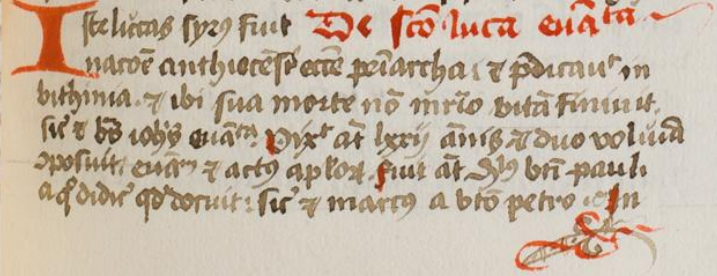 Iste lucas syrus fuit De sco luca euāta
natōe anthiocēs ecce pīarcha i ꝛ pdicauᵗ in
bithinia. ꝛ ibi sua morte nō mrīo vitā finiuit.
sic ꝛ bts iohēs euāta. vixᵗ āt lxxij annis ꝛ duo voluīa
ꝯposuit. euām ꝛ actus aplorꝫ. fuit āt bti pauli
a q didic qd docuit: sic ꝛ marcus a bto petro